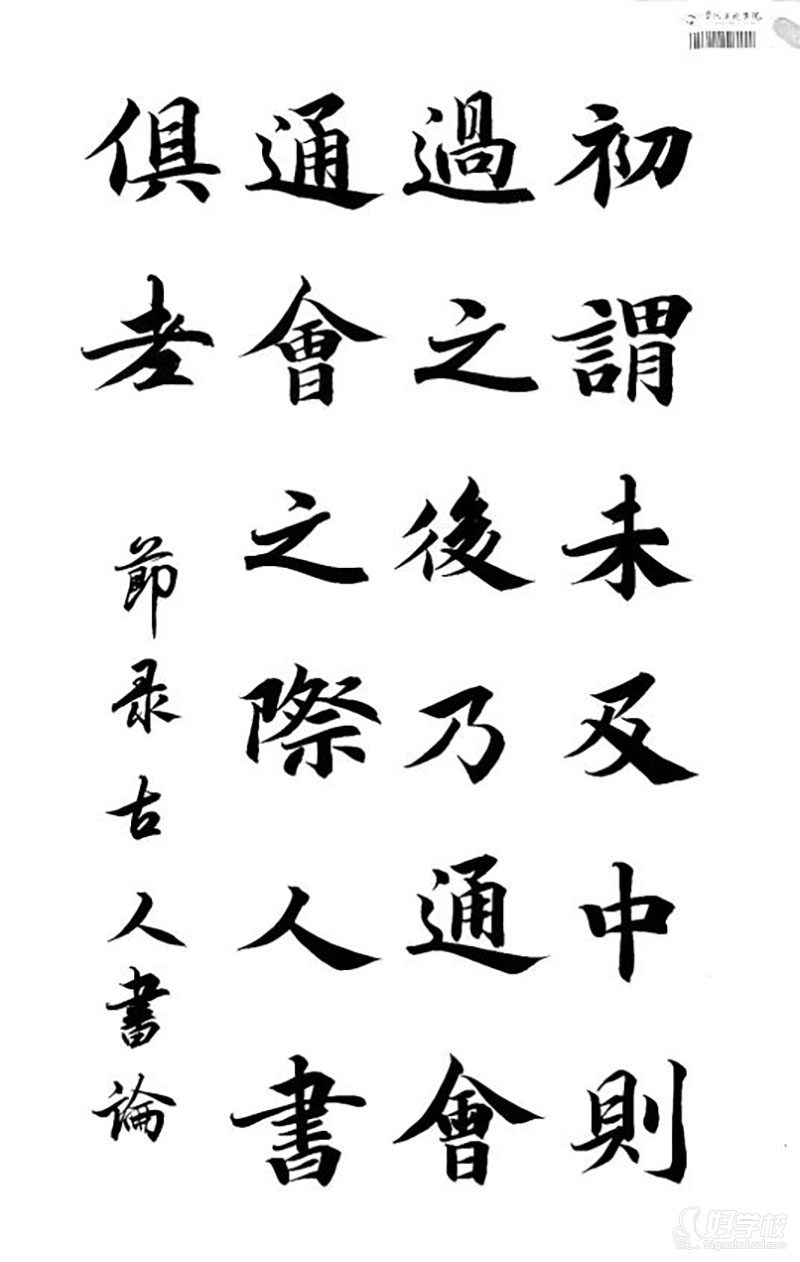 初謂未及中則
過之後乃通會
通會之際人書
俱老
節录古人書論
好学校
91goodschool.com